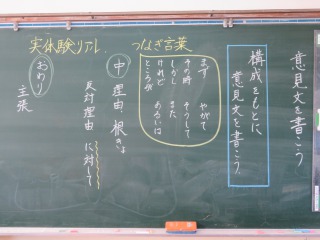 意見文を書こう
構成をもとに、
意見文を書こう。
実体験リアル
つなぎ言葉
まず やがて
その時 そうして
しかし また
けれど あるいは
ところが
中 理由 根きょ
反対理由 に対して
おわり
主張